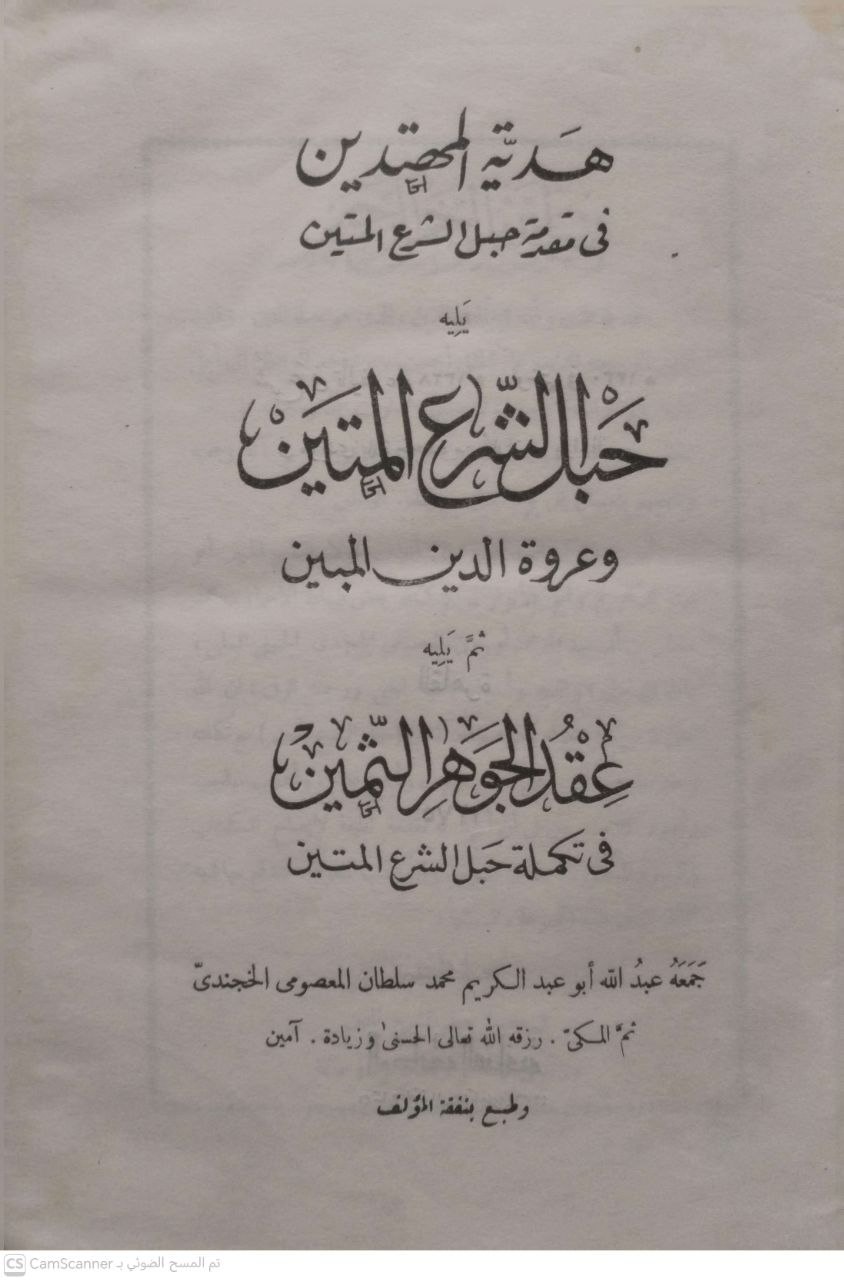 هَديّة المهتدين
فى مقدمة حبل الشرع المتين
يَلِيه
حَبْل الشّرع المتَين
وعروة الدين المبين
ثمَّ يَلِيه
عِقْدُ الجَوَهرِ الثّمين
فى تكملة حَبل الشرع المتين
جَمَعَهُ عبدُ الله أبو عبد الكريم محمد سلطان المعصومى الخجندىّ
ثمَّ المكىّ . رزقه الله تعالى الحسنىٰ وزيادة . آمين
وطبع بنفقة المؤلف
CS CamScanner تم المسح الضوئي بـ